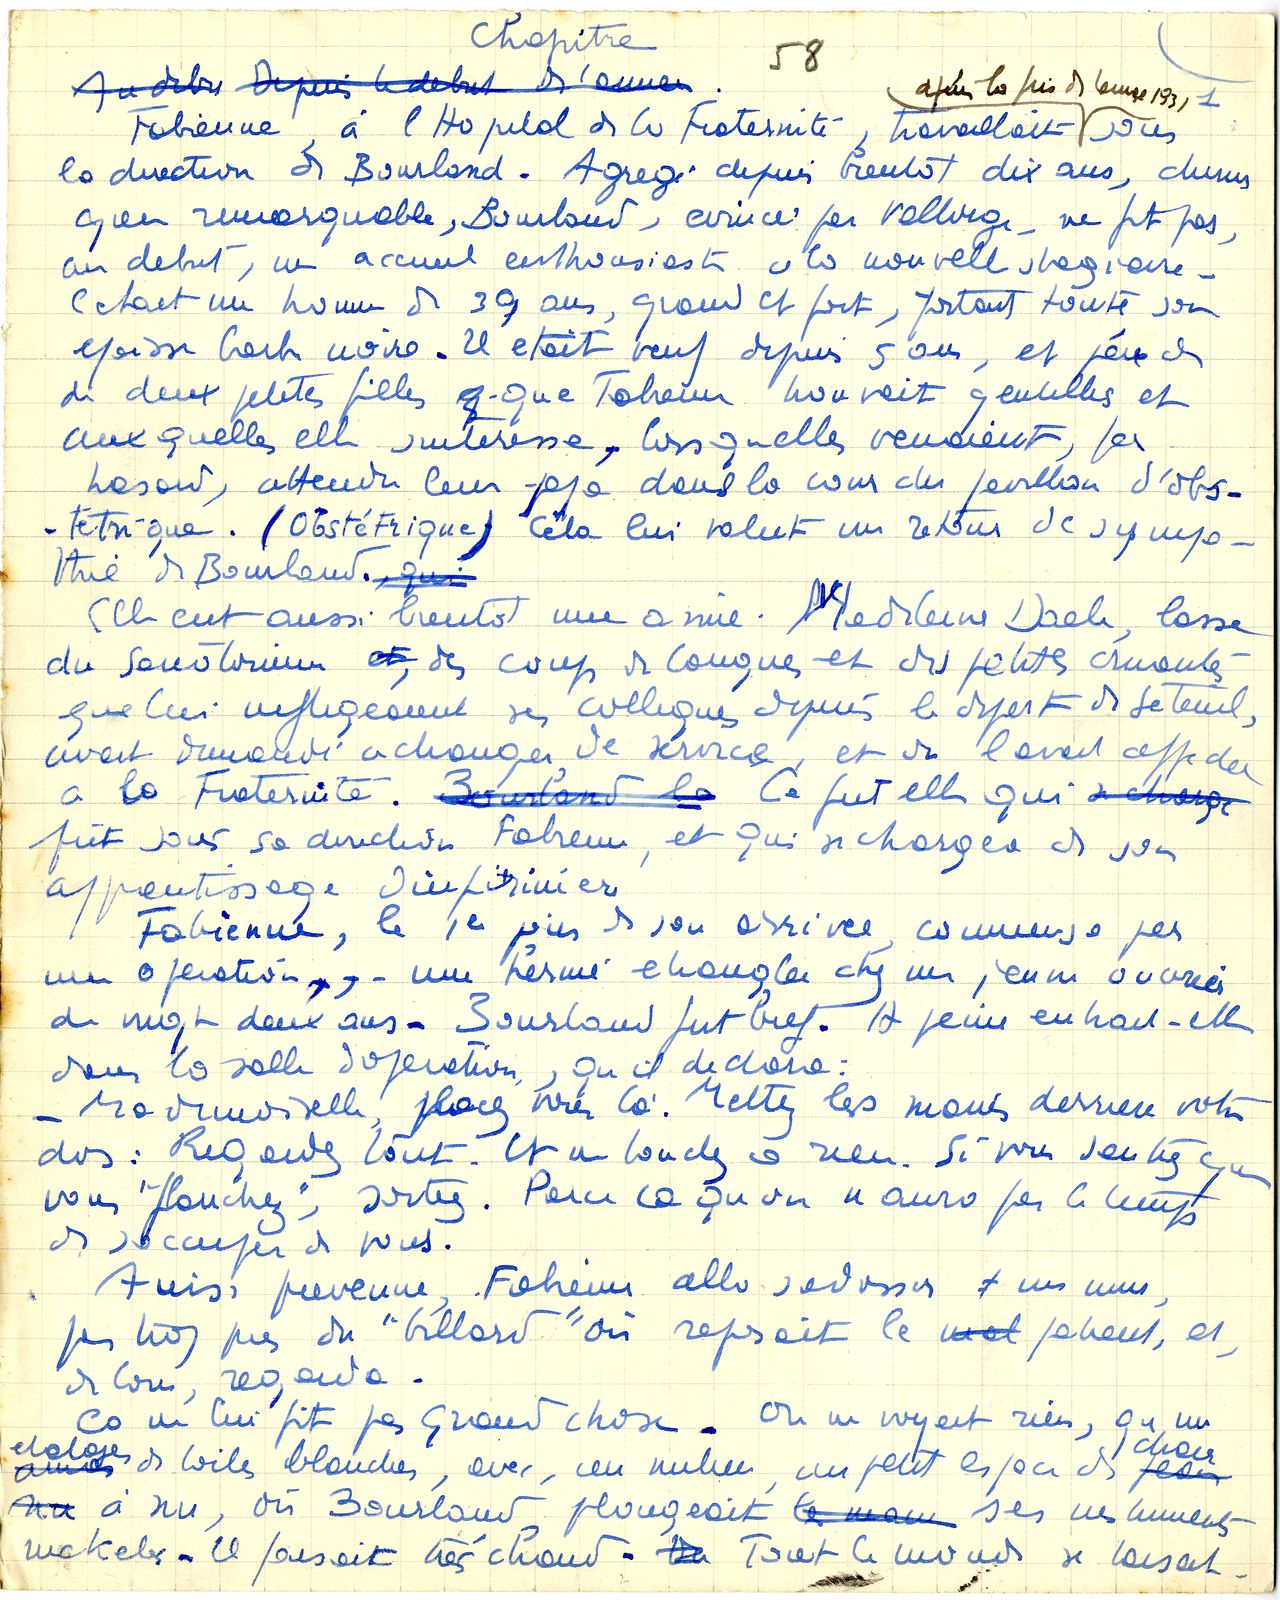 Chapitre
58
Au debu Depuis le debut de l'annee.
après la fin de l'annee 1931 1
Fabienne, à l'Hopital de la Fraternité, travaillait sous
la direction de Bourland. Agregé depuis bientôt dix ans, chirur
gien remarquable, Bourland, evincé par Vallorge, ne fit pas,
au debut, un accueil enthousiaste a la nouvelle stagiaire.
C'etait un homme de 39 ans, grand et fort, portant toute son
epaisse barbe noire. Il etait veuf depuis 5 ans, et père de
de deux petites filles que Fabienne trouvait gentilles et
auxquelles elle s'interessa, lorsquelles venaient, par
hasard, attendre leur papa dans la cour du pavillon d'obs-
-tétrique. (Obstétrique) Cela lui valut un retour de sympa-
thie de Bourland. , qui
Elle eut aussi bientôt une amie. Madeleine Daele, lasse
du Sanatorium et, des coups de langues et des petites cruautés
que lui infligeaient ses collegues depuis le depart de Seteuil,
avait demandé a changer de service, et on l'avait affectée
a la Fraternité. Bourland la Ce fut elle qui se charge
prit sous sa direction Fabienne, et qui se chargea de son
apprentissage d'infirmière
Fabienne, le 1er jour de son arrivee, commença par
une operation, - une hernie etranglee chez un jeune ouvrier
de vingt deux ans. Bourland fut bref. A peine entrait-elle
dans la salle d'operation, qu'il declara:
- Mademoiselle, placez vous là. Mettez les mains derriere votre
dos: Regardez tout. Et ne touchez a rien. Si vous sentez que
vous "flanchez", sortez. Parce ca qu'on n'aura pas le temps
de s'occuper de vous.
Ainsi prevenue, Fabienne alla s'adosser a un mur,
pas trop pres du "billard" où reposait le mal patient, et,
de loin, regarda.
Ca ne lui fit pas grand chose. On ne voyait rien, qu'un
etalage de toiles blanches, avec, au milieu, un petit espace de chair
nu à nu, où Bourland plongeait la main ses instruments
nickeles. Il faisait très chaud. Tout le monde se taisait.